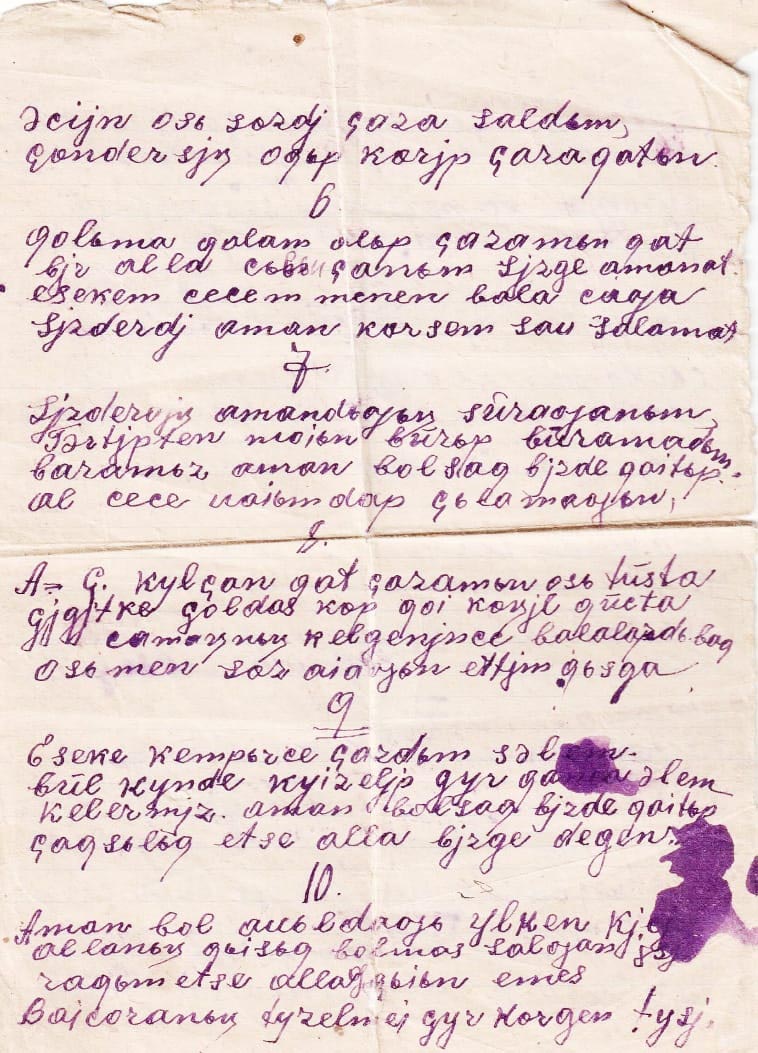 əcijn osь sөzdj çaza saldьm,
çөndersjŋ oqьp kөrjp çaraqatьn.
6.
qolьma qalam alьp çazamьn qat
bjr alla çanьm sjzge amanat.
esekem cecem menen bala caƣa
sjzderdj aman kөrsem sau salamat
7.
amandьƣьŋ sūraƣanьm,
Tərtjpten mojьn būrьp būramadьm.
baramьz aman bolsaq bjzde qaitьp.
al cece uaiьmdap çьlamaƣьn,
8.
A. Ç. kylçan qat çazamьn osь tūsta
çjgjtke çoldas kөp qoi kөŋjl qūcta
kelgenjnce balalardь baq
osь men sөz aiaƣьn ettjm qьsqa
9
Eseke kempjrce çazdьm səlem.
būl kynde kyizeljp çyr əlem
kelermjz. aman bolsaq bjzde qaitьp
çaqsьlьq etse alla bjzge degen.
10.
Aman bol auьldaƣь ylken
allanьŋ qaisьq bolmas salƣan
raqьm etse alla qьiьn emes
Baicoranьŋ tyzelmej çyr kөrgen tysj.